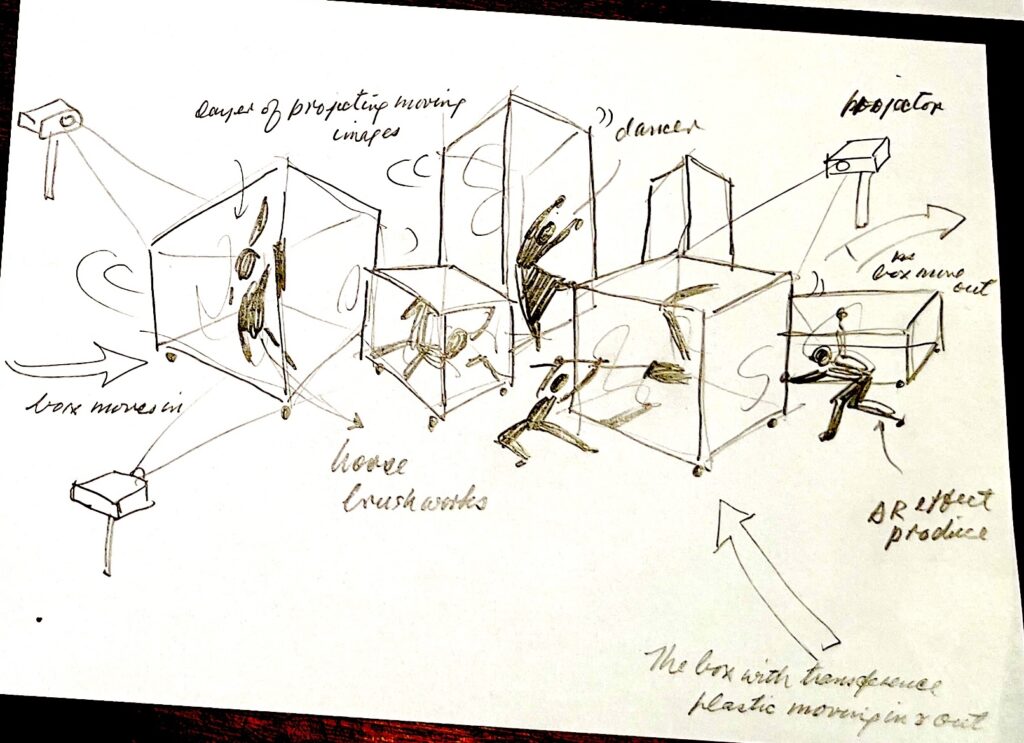 Layer of projecting moving
images
dancer
projector
box move
out
box moves in
brushworks
AR effect
produce
The box with transference
plastic moving in & out